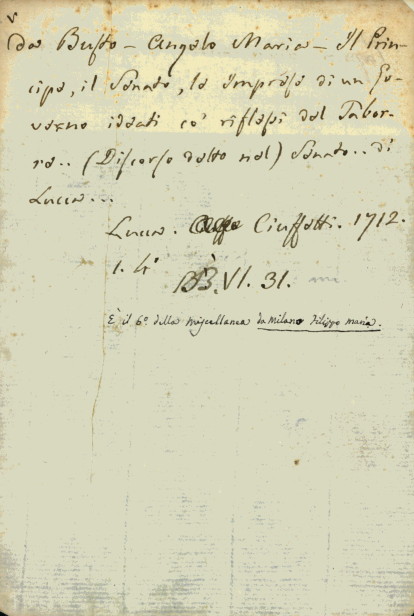 v
Da Busto - Angelo Maria - Il Prin-
cipe, il Senato, le Imprese di un Go-
verno ideati co' riflessi del Tabor-
re.. (Discorso detto nel) Senato.. di
Lucca...
Lucca. Ciuffetti. 1712.
1. 4°
BB.VI. 31.
È il 6° della miscellanea da Milano Filippo Maria.